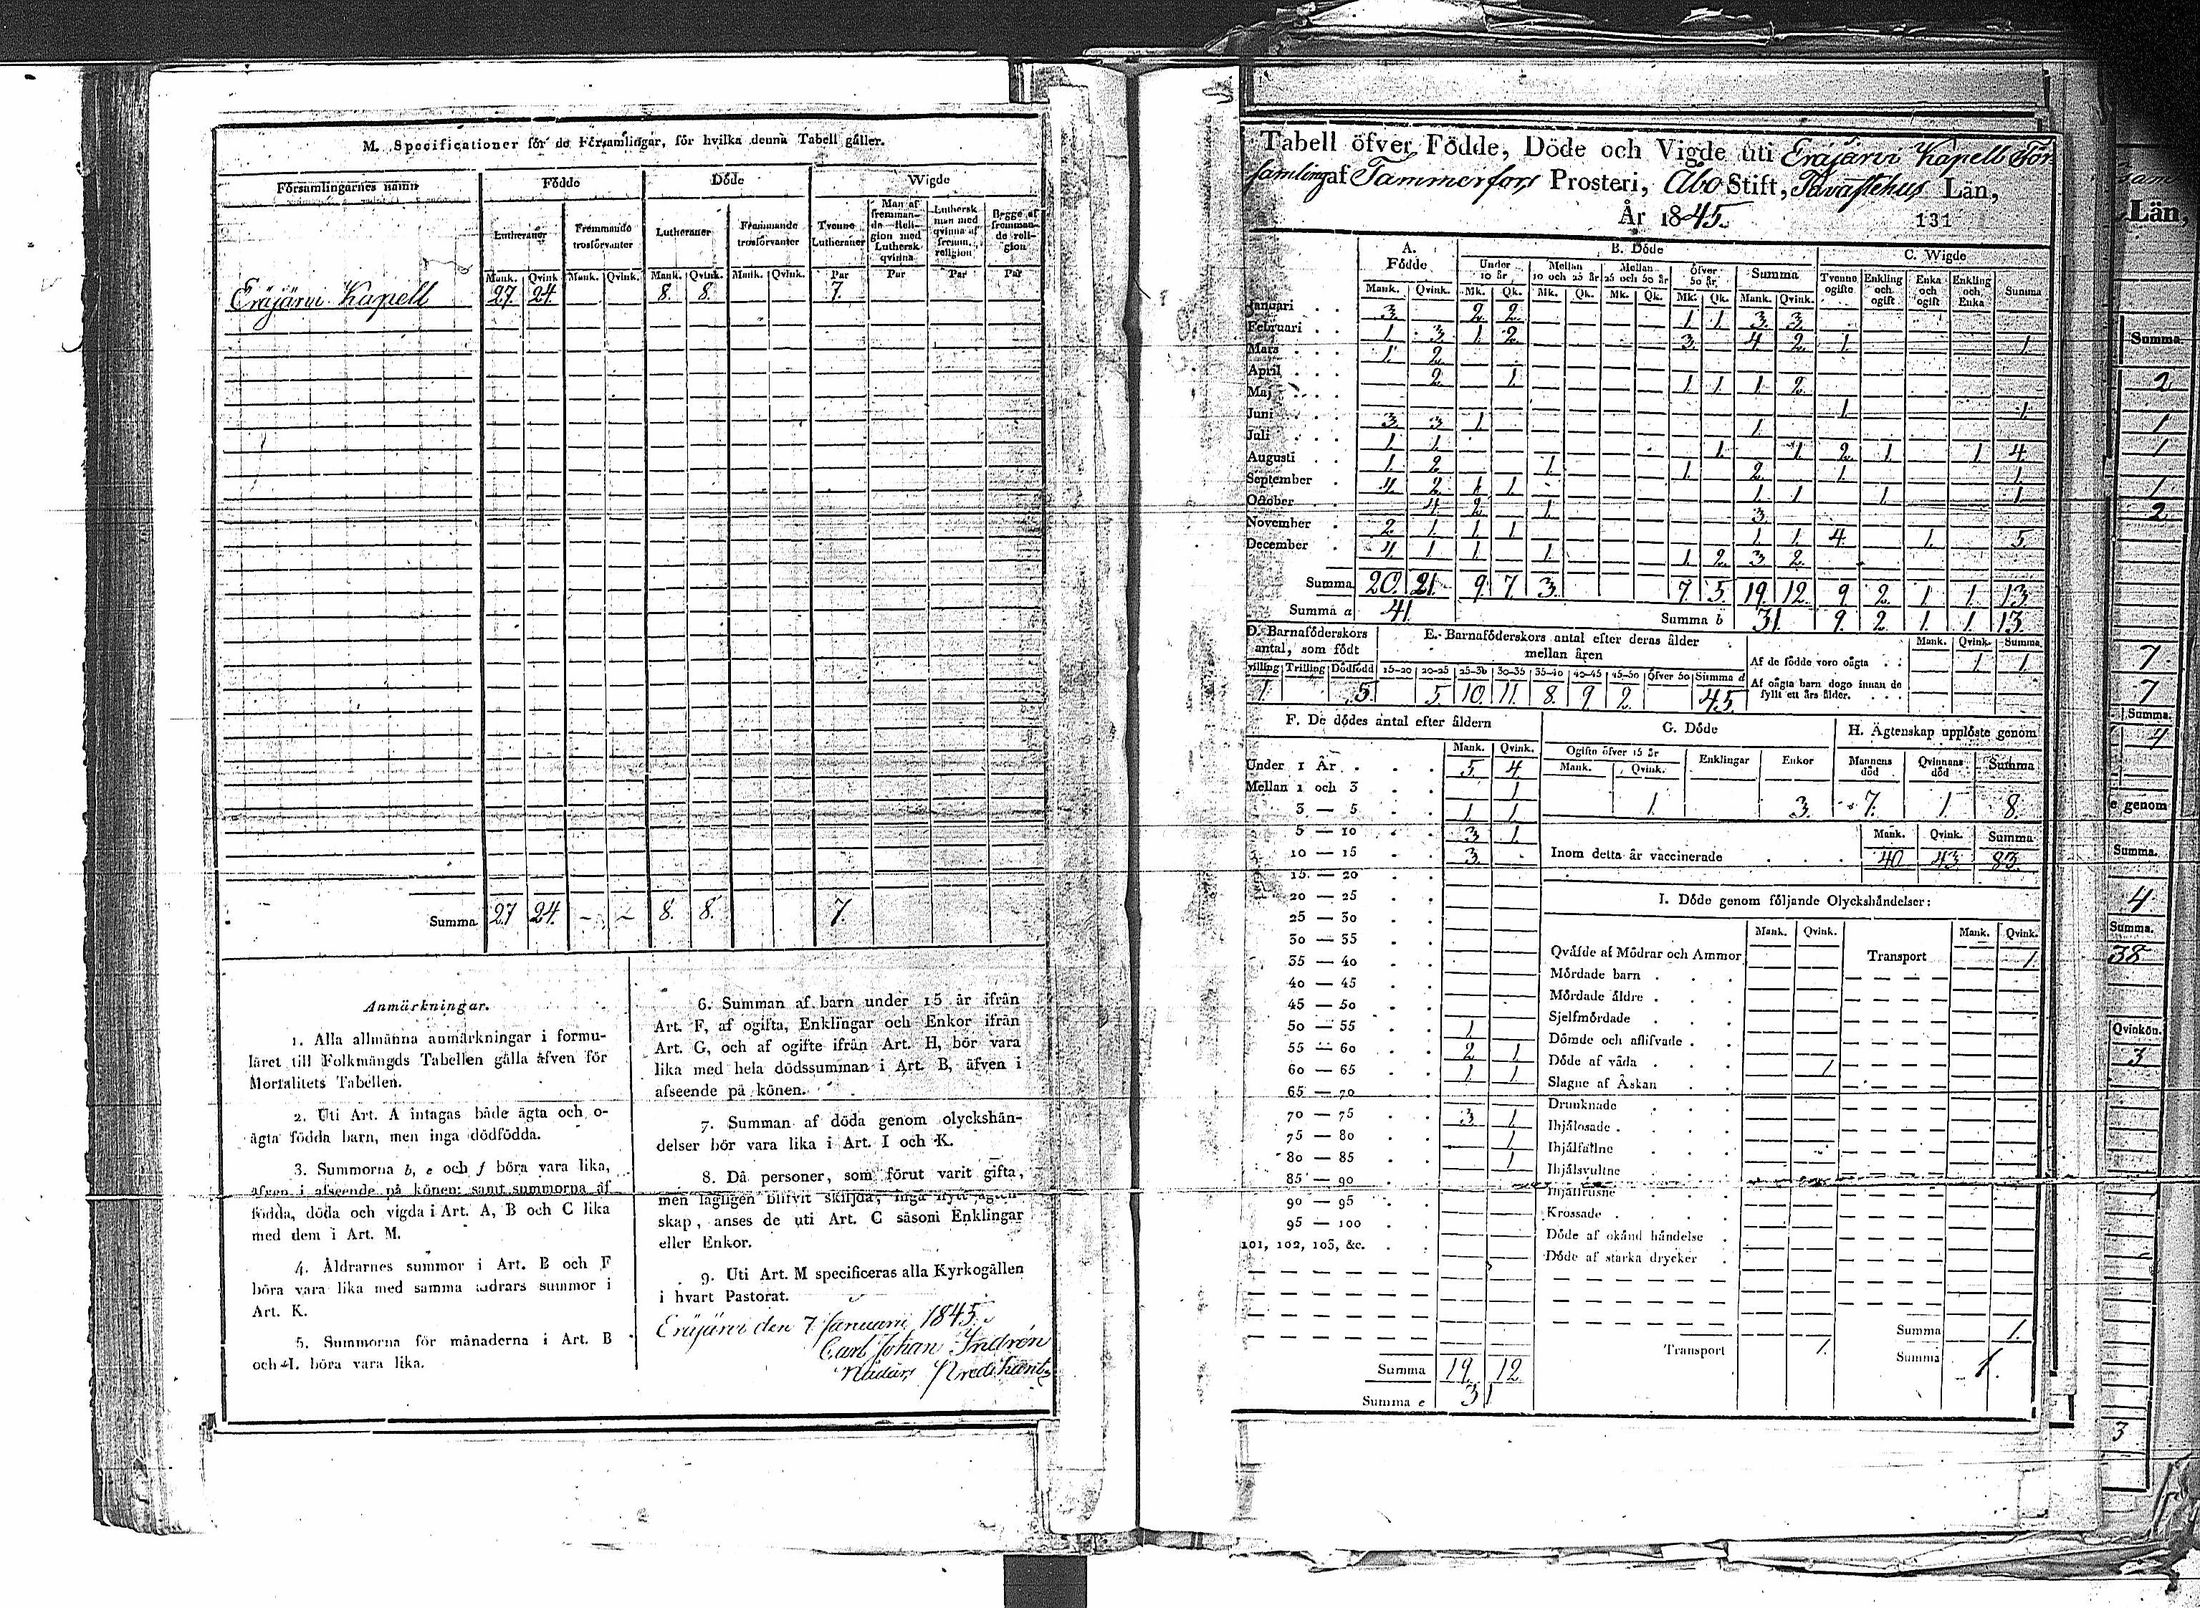 M. Specificationer för de Församlingar, för hvilka denna Tabell gäller.
Församlingarnes namn Födde Döde Wigde
Lutheraner Främmande trosförvanter Lutheraner Främmande trosförvanter Tvenne Lutheraner Man af fremmande Religion med Luthersk qvinna Luthersk man med qvinna af fremm. religion Begge af fremmande religion
Mank. Qvink Mank. Qvink. Mank. Qvink. Mank. Qvink. Par Par Par Par
Eräjärvi Kapell 27 24 8. 8. 7.
Summa 27 24 - - 8. 8. 7.
Anmärkningar.
1. Alla allmänna anmärkningar i formu-
läret till Folkmängds Tabellen gälla äfven för
Mortalitets Tabellen.
2. Uti Art. A intagas både ägta och o-
ägta födda barn, men inga dödfödda.
3. Summorna b, e och f böra vara lika,
äfven i afseende på könen; samt summorna af
födda, döda och vigda i Art. A, B och C lika
med dem i Art. M.
4. Åldrarnes summor i Art. B och F
böra vara lika med samma åldrars summor i
Art. K.
5. Summorna för månaderna i Art. B
och L. böra vara lika.
6. Summan af barn under 15 år ifrån
Art. F, af ogifta, Enklingar och Enkor ifrån
Art. G, och af ogifte ifrån Art. H, bör vara
lika med hela dödssumman i Art. B, äfven i
afseende på könen.
7. Summan af döda genom olyckshän-
delser bör vara lika i Art. I och K.
8. Då personer, som förut varit gifta,
men lagligen blifvit skiljda, ingå nytt ägten-
skap, anses de uti Art. C såsom Enklingar
eller Enkor.
9. Uti Art. M specificeras alla Kyrkogällen
i hvart Pastorat.
Eräjärvi den 7 Januari 1845.
Carl Johan
Tabell öfver Födde, Döde och Vigde uti Eräjärvi Kapell För
samling af Tammerfors Prosteri, Åbo Stift, Tavastehus Län,
År 1845. 131
A. Födde B. Döde C. Wigde
Under 10 år Mellan 10 och 25 år Mellan 25 och 50 år Öfver 50 år Summa Tvenne ogifte Enkling och ogift Enka och ogift Enkling och Enka Summa
Mank. Qvink. Mk. Qk. Mk. Qk. Mk. Qk. Mk. Qk. Mank. Qvink.
Januari 3. 2 2 1 1 3 3
Februari 1 3 1 2 3. 4 2. 1. 1.
Mars 1 2
April 2. 1. 1 1 1 2
Maj 1. 1.
Juni 3 3 1 1.
Juli 1 1 1. 1. 2. 1. 1 4
Augusti 1 2 1. 1. 2 1. 1.
September 4. 2 1 1 1 1 1. 1
October 4 2 1. 3.
November 2. 1. 1 1 1. 1. 4. 1. 5.
December 4 1 1. 1. 1 2. 3 2.
Summa 20. 21. 9. 7. 3. 7. 5. 19. 12. 9 2. 1. 1. 13
Summa a 41. Summa b 31. 9. 2. 1. 1. 13
D. Barnaföderskors antal, som födt
E. Barnaföderskors antal efter deras ålder mellan åren
villing Trilling Dödfödd 15—20 20—25 25—30 30—35 35—40 40—45 45—50 öfver 50 Summa d
1. 5. 5 10. 11. 8. 9 2. 45.
Mank. Qvink. Summa
Af de födde voro oägta 1 1.
Af oägta barn dogo innan de fyllt ett års ålder.
F. De dödes antal efter åldern
Mank. Qvink.
Under 1 År 5 4
Mellan 1 och 3 1
3 — 5 1 1
5 — 10 3 1.
10 — 15 3.
15 — 20
20 — 25
25 — 30
30 — 35
35 — 40
40 — 45
45 — 50
50 — 55 1
55 — 60 2 1
60 — 65 1 1
65 — 70
70 — 75 3 1
75 — 80 1
80 — 85 1
85 — 90
90 — 95
95 — 100
101, 102, 103, &c.
Summa 19 12
Summa e 31
G. Döde
Ogifta öfver 15 år Enklingar Enkor
Mank. Qvink.
1. 3.
H. Ägtenskap upplöste genom
Mannens död Qvinnans död Summa
7. 1. 8.
Mank. Qvink. Summa
Inom detta år vaccinerade 40 43 83.
I. Döde genom följande Olyckshändelser:
Mank. Qvink. Mank. Qvink.
Qväfde af Mödrar och Ammor Transport 1.
Mördade barn
Mördade äldre
Sjelfmördade
Dömde och aflifvade
Döde af våda 1
Slagne af Åskan
Drunknade
Ihjälosade
Ihjälfallne
Ihjälsvultne
Ihjälfrusne
Krossade
Döde af okänd händelse
Döde af starka drycker
Summa 1.
Transport 1. Summa 1.
Län,
Summa
2
1
1
1
2.
7.
7
Summa.
4
e genom
Summa.
4
Summa.
38
Qvinkön.
3
3